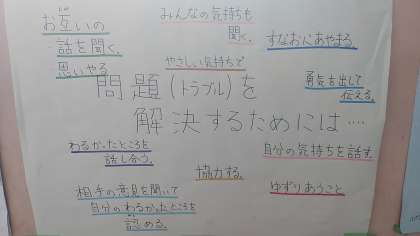 お互いの
話を聞く。
思いやる
みんなの気持ちも
聞く。
すなおにあやまる。
やさしい気持ちで
問題(トラブル)を
解決するためには‥‥
勇気を出して
伝える。
わるかったところを
話し合う。
自分の気持ちを話す。
協力する。
相手の意見を聞いて
自分のわるかったところを
認める。
ゆずりあうこと